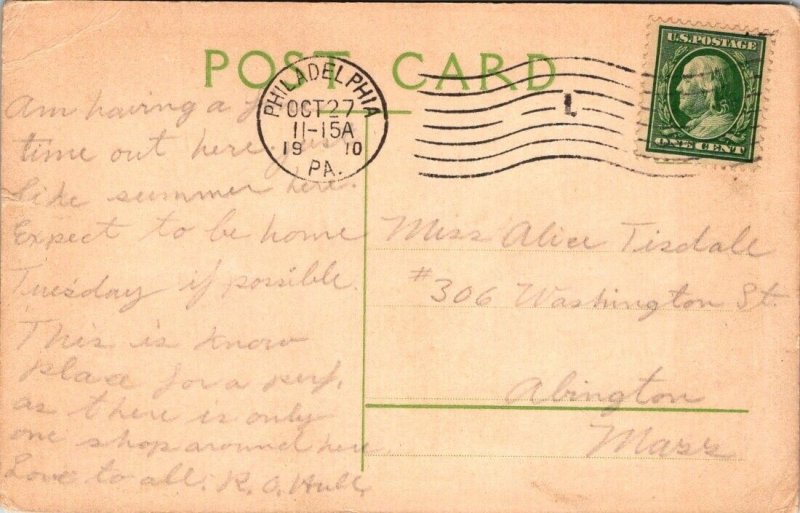 POST CARD
PHILADELPHIA
OCT 27
11-15A
19 10
PA.
1
U.S. POSTAGE
ONE CENT
Am having a
time out here. Just
like summer here.
Expect to be home
Tuesday if possible.
This is know
place for a
as there is only
one shop around here
Love to all. R. O. Hull
Miss Alice Tisdale
#306 Washington St.
Abington
Mass